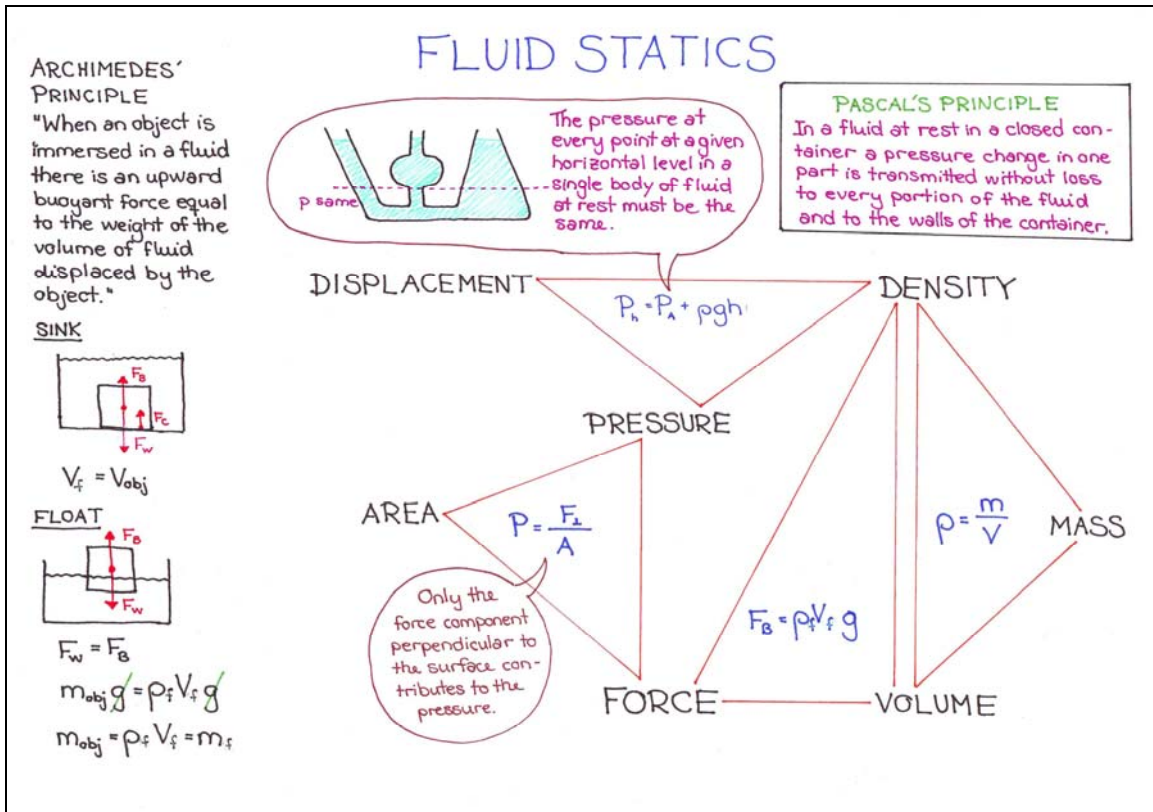 FLUID STATICS
ARCHIMEDES'
PRINCIPLE
"When an object is
immersed in a fluid
there is an upward
buoyant force equal
to the weight of the
volume of fluid
displaced by the
object."
SINK
F_B
F_c
F_w
V_f = V_obj
FLOAT
F_B
F_w
F_w = F_B
m_obj g = ρ_f V_f g
m_obj = ρ_f V_f = m_f
p same
The pressure at
every point at a given
horizontal level in a
single body of fluid
at rest must be the
same.
PASCAL'S PRINCIPLE
In a fluid at rest in a closed con-
tainer a pressure change in one
part is transmitted without loss
to every portion of the fluid
and to the walls of the container.
DISPLACEMENT
P_h = P_A + ρgh
DENSITY
PRESSURE
AREA
P = F_⊥ / A
ρ = m / V
MASS
Only the
force component
perpendicular to
the surface con-
tributes to the
pressure.
F_B = ρ_f V_f g
FORCE
VOLUME